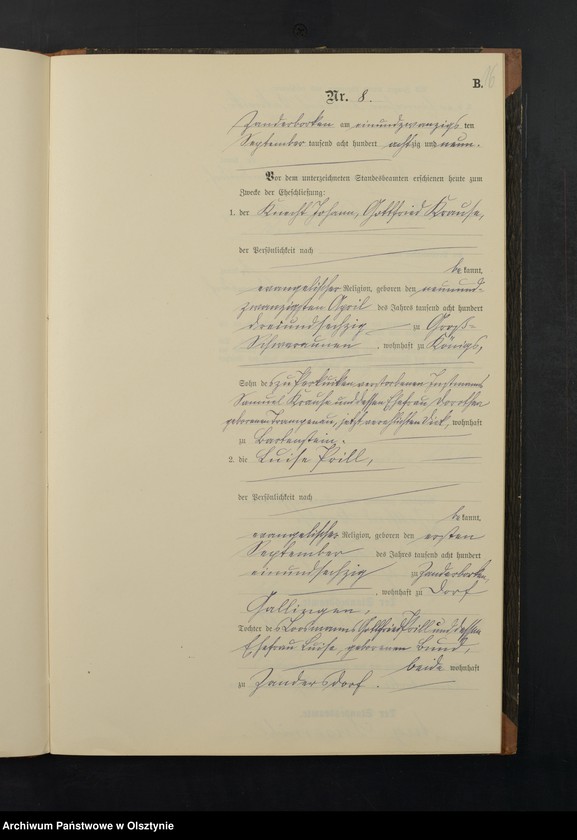 B. 16
Nr. 8.
Zanderborken am einundzwanzigsten
September tausend acht hundert achtzig und neun.
Vor dem unterzeichneten Standesbeamten erschienen heute zum
Zwecke der Eheschließung:
1. der Knecht Johann, Gottfried Krause,
der Persönlichkeit nach
be kannt,
evangelischer Religion, geboren den neunund-
zwanzigsten April des Jahres tausend acht hundert
dreiundsechzig zu Groß-
Schwaraunen, wohnhaft zu Königs,
Sohn des zu verstorbenen Instmanns
Samuel Krause und dessen Ehefrau Dorothea
geborenen jetzt verehelichten wohnhaft
zu Bartenstein.
2. die Luise Prill,
der Persönlichkeit nach
be kannt,
evangelischer Religion, geboren den ersten
September des Jahres tausend acht hundert
einundsechzig zu Zanderborken,
, wohnhaft zu Dorf
Gallingen,
Tochter des Losmanns Gottfried Prill und dessen
Ehefrau Luise, geborenen Bund,
beide wohnhaft
zu Zandersdorf.
Archiwum Państwowe w Olsztynie